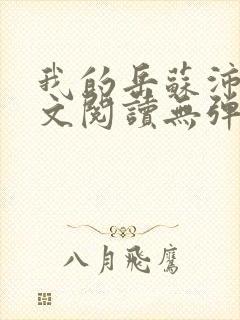 我的岳蘇沛
文閱讀無彈
八月飛鷹